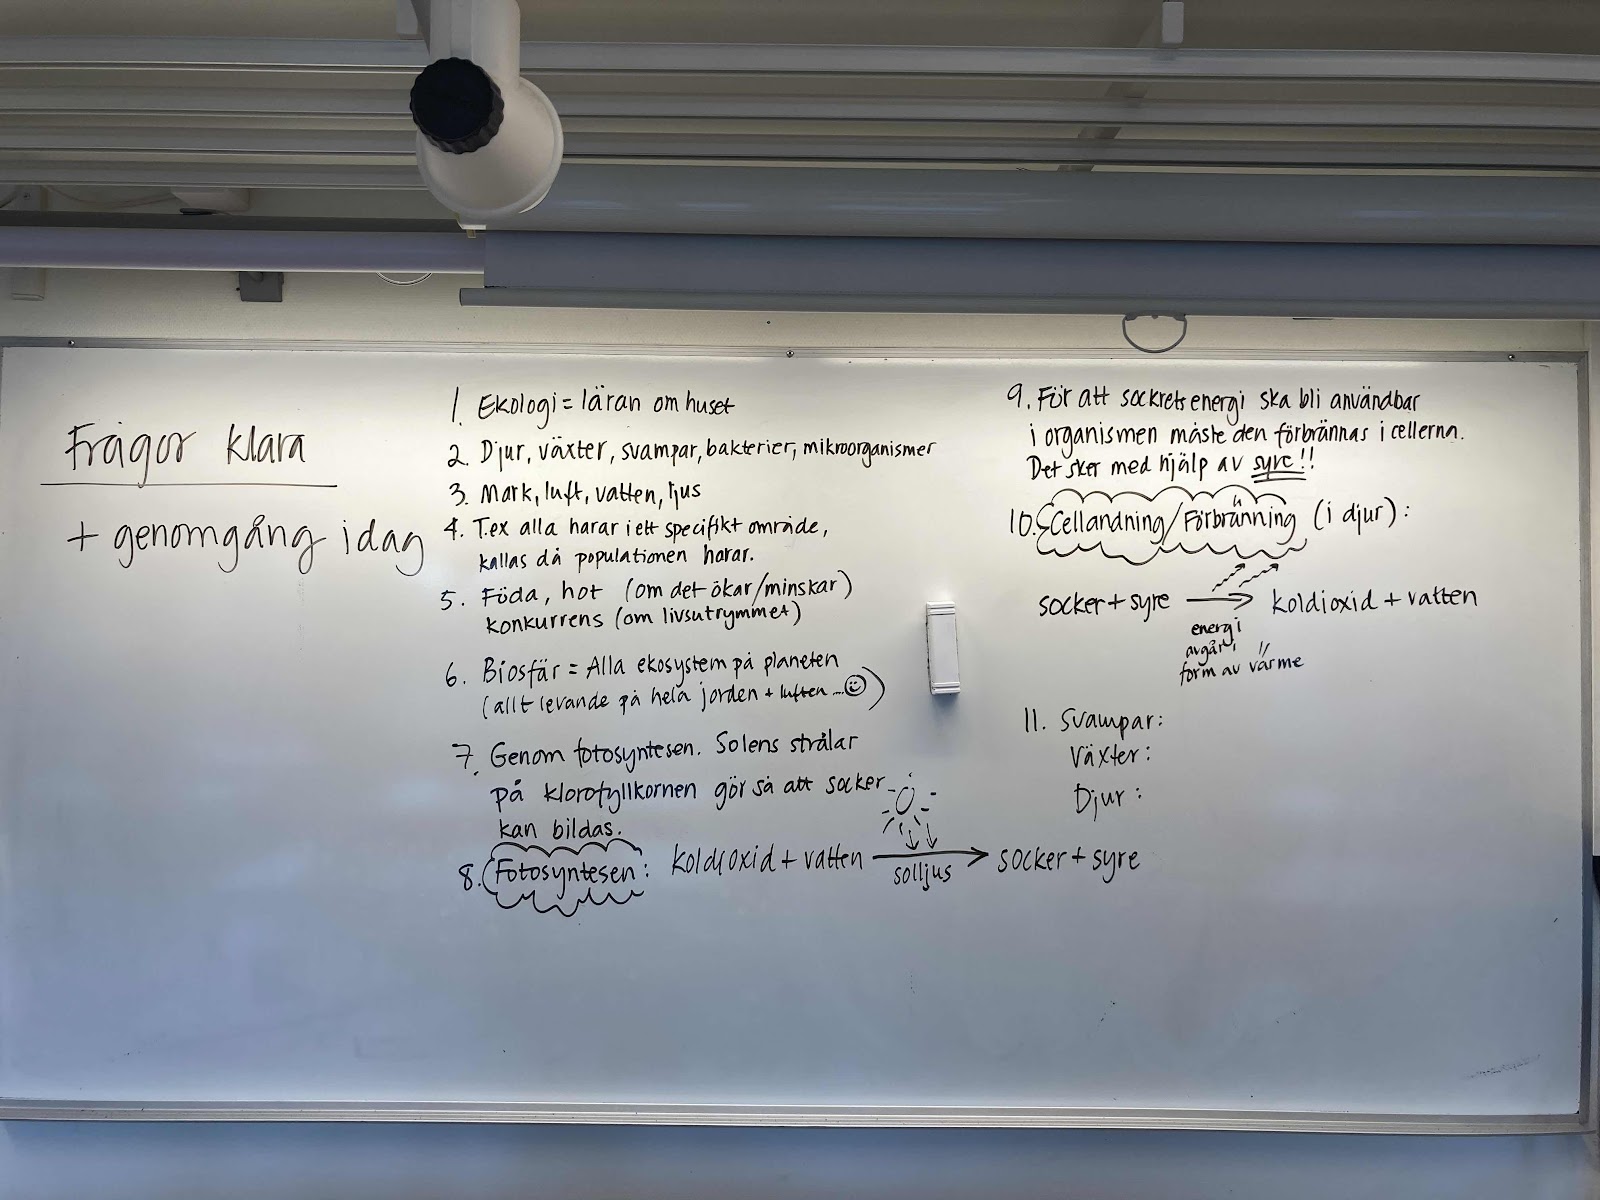 Frågor klara
+ genomgång idag
1. Ekologi = läran om huset
2. Djur, växter, svampar, bakterier, mikroorganismer
3. Mark, luft, vatten, ljus
4. T.ex alla harar i ett specifikt område,
kallas då populationen harar.
5. Föda, hot (om det ökar/minskar)
konkurrens (om livsutrymmet)
6. Biosfär = Alla ekosystem på planeten
(allt levande på hela jorden + luften ....☺)
7. Genom fotosyntesen. Solens strålar
på klorofyllkornen gör så att socker
kan bildas.
8. Fotosyntesen: koldioxid + vatten → socker + syre
solljus
9. För att sockrets energi ska bli användbar
i organismen måste den förbrännas i cellerna.
Det sker med hjälp av syre!!
10. Cellandning/Förbränning (i djur):
socker + syre → koldioxid + vatten
energi
avgår i
form av värme
11. Svampar:
Växter:
Djur: